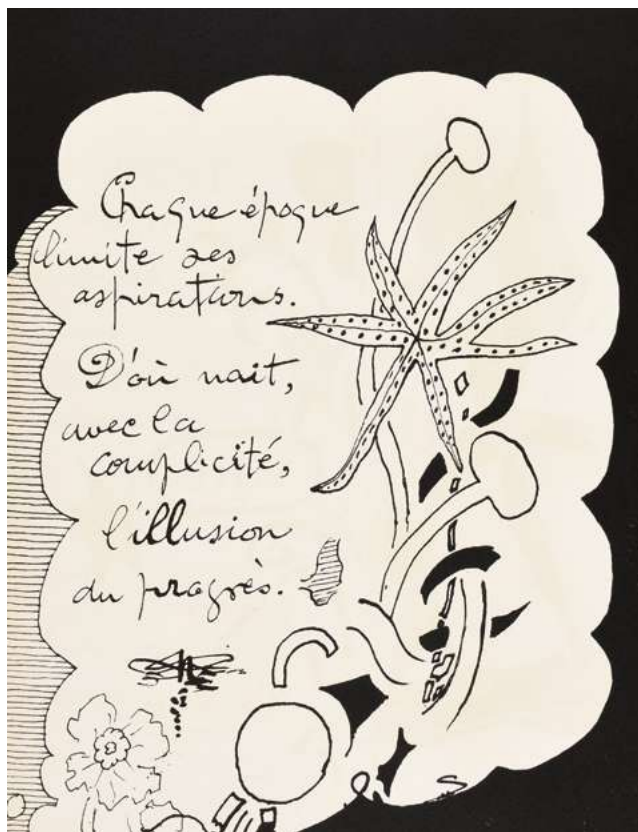 Chaque époque
limite ses
aspirations.
D'où nait,
avec la
complicité,
l'illusion
du progrès.